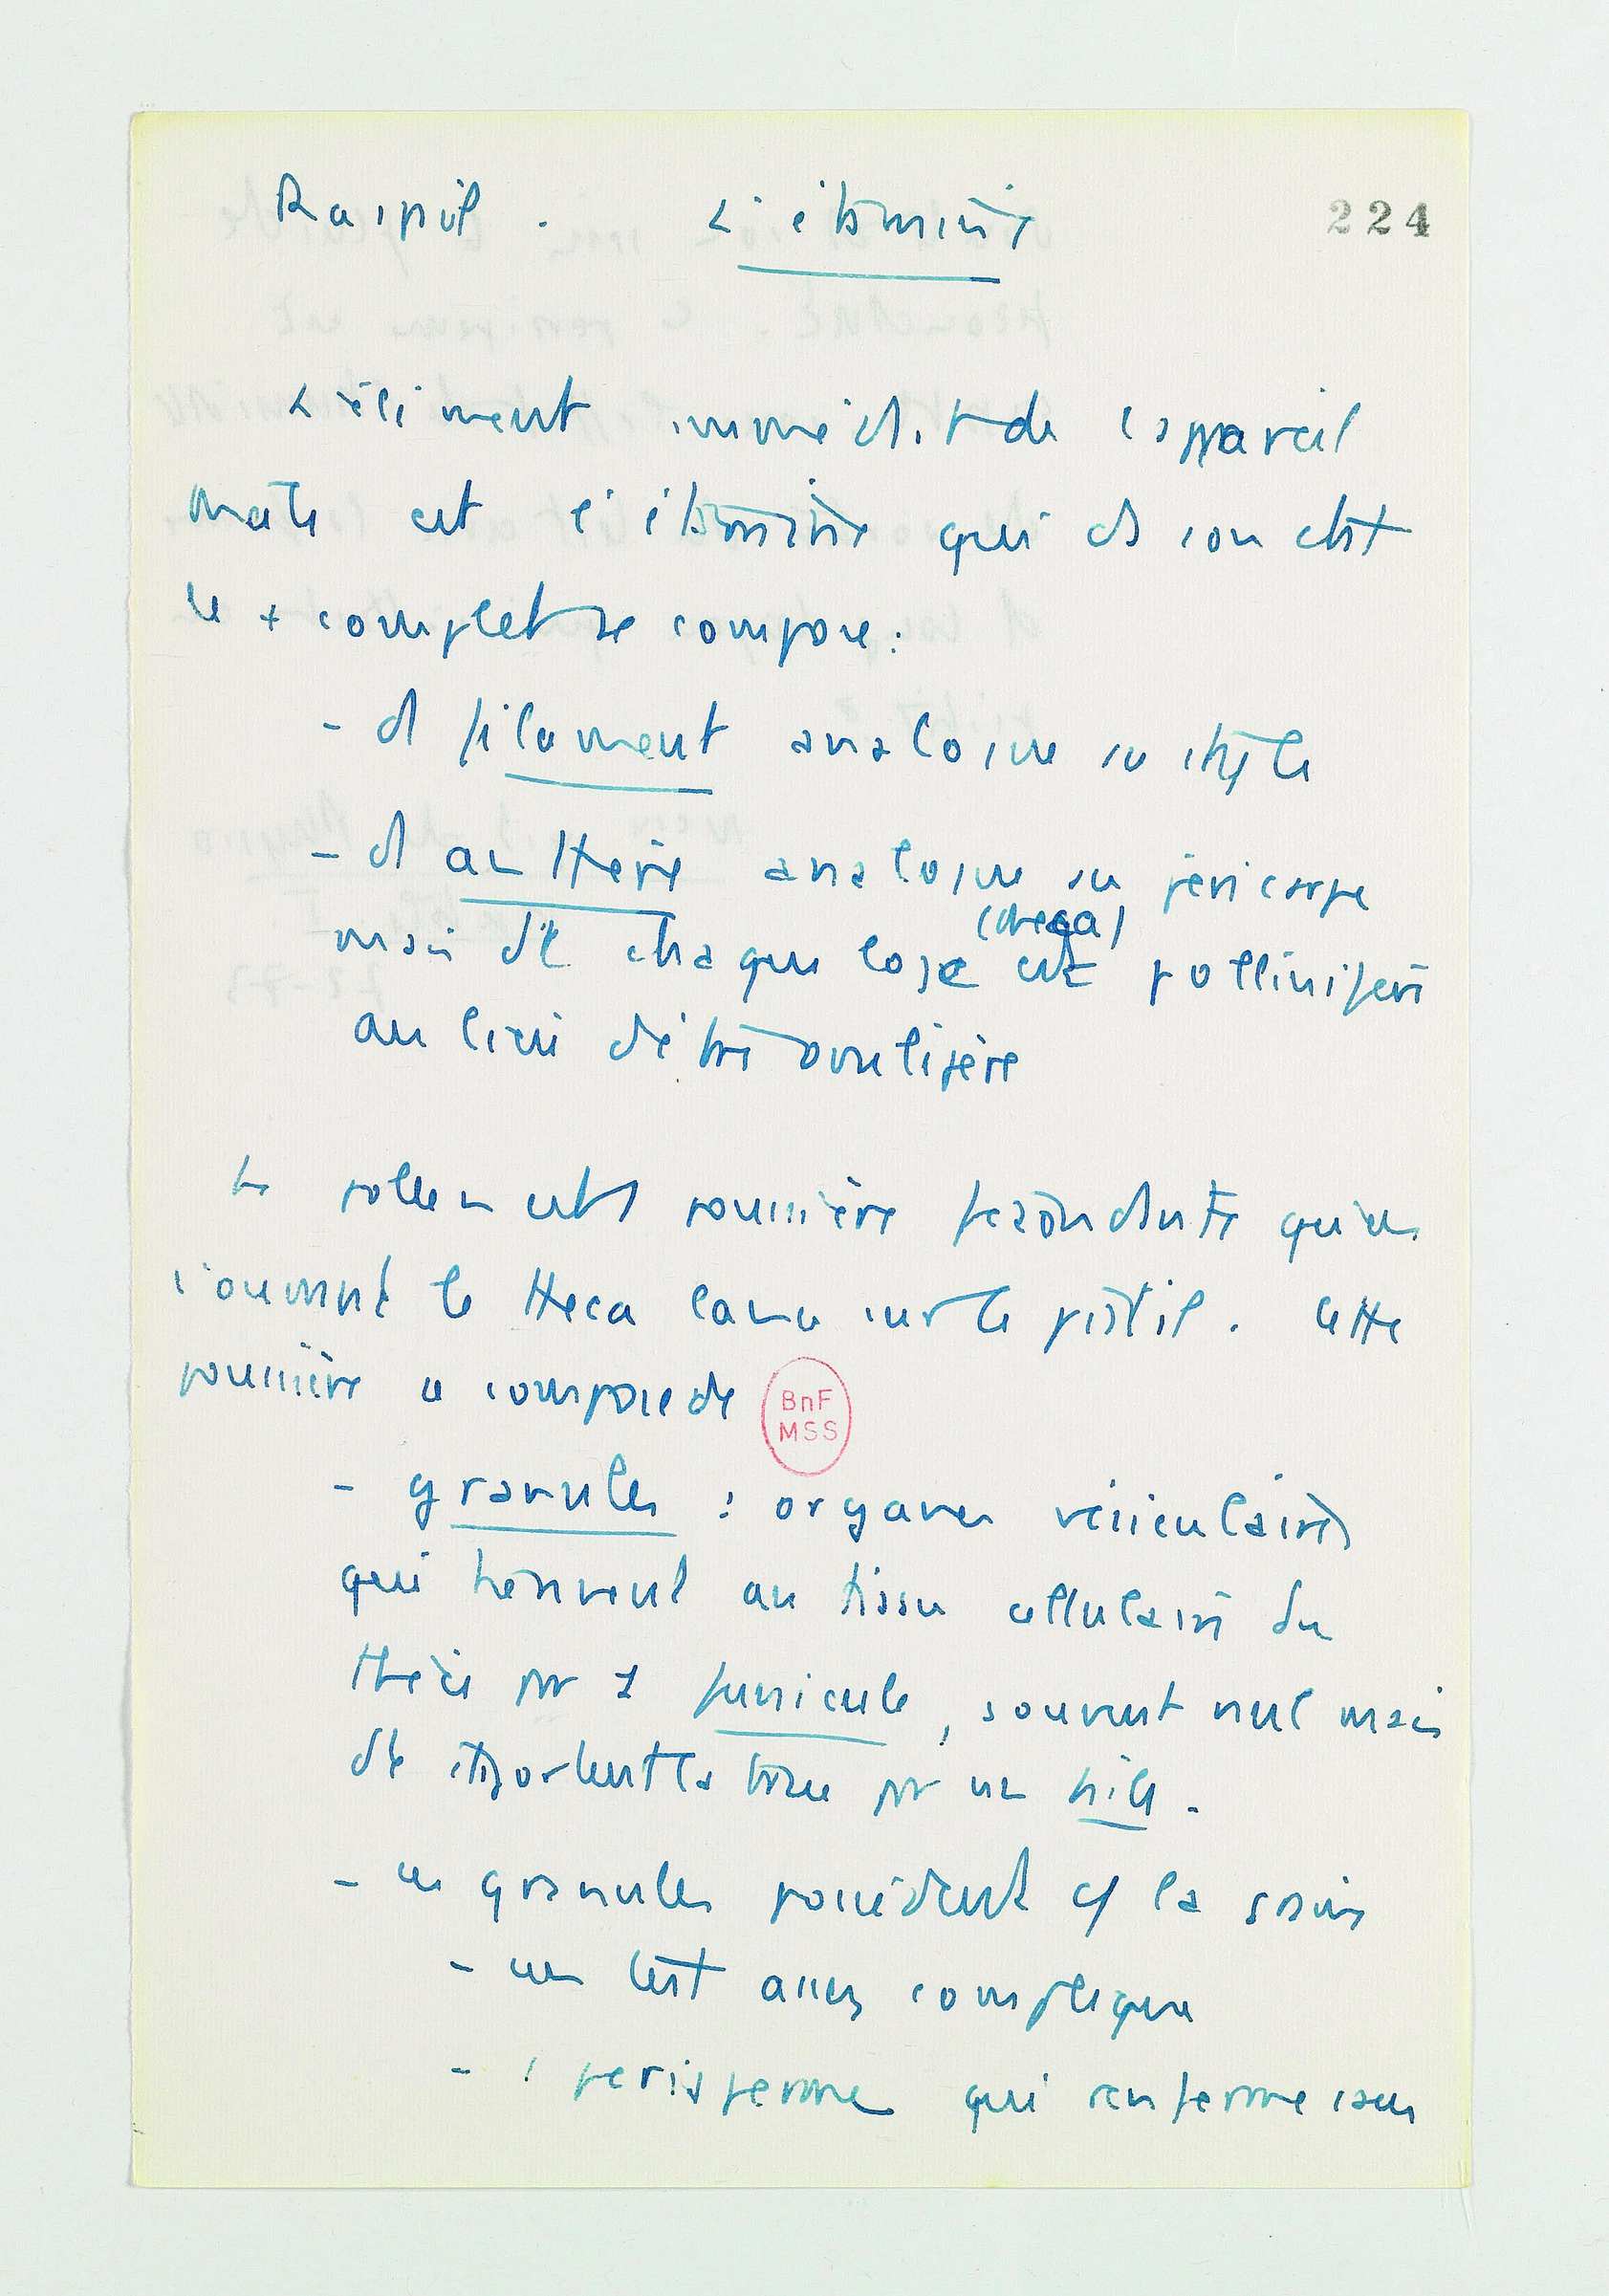 Raspail. L'étamine
224
L'élément immédiat de l'appareil
mâle est l'étamine qui ds son état
le + complet se compose :
- d filament analogue au style
- d anthère analogue au péricarpe
(theca)
mais dt chaque loge est pollinifère
au lieu d'être ovulifère
Le pollen est 1 poussière fécondante qu'en
s'ouvrant le theca lance sur le pistil. Cette
poussière se compose de
BnF
MSS
- granules : organes vésiculaires
qui tiennent au tissu cellulaire du
par 1 funicule, souvent nul mais
dt ils portent la trace par un hile.
- ces granules possèdent c/ la graine
- un test assez compliqué
- 1 perisperme qui renferme